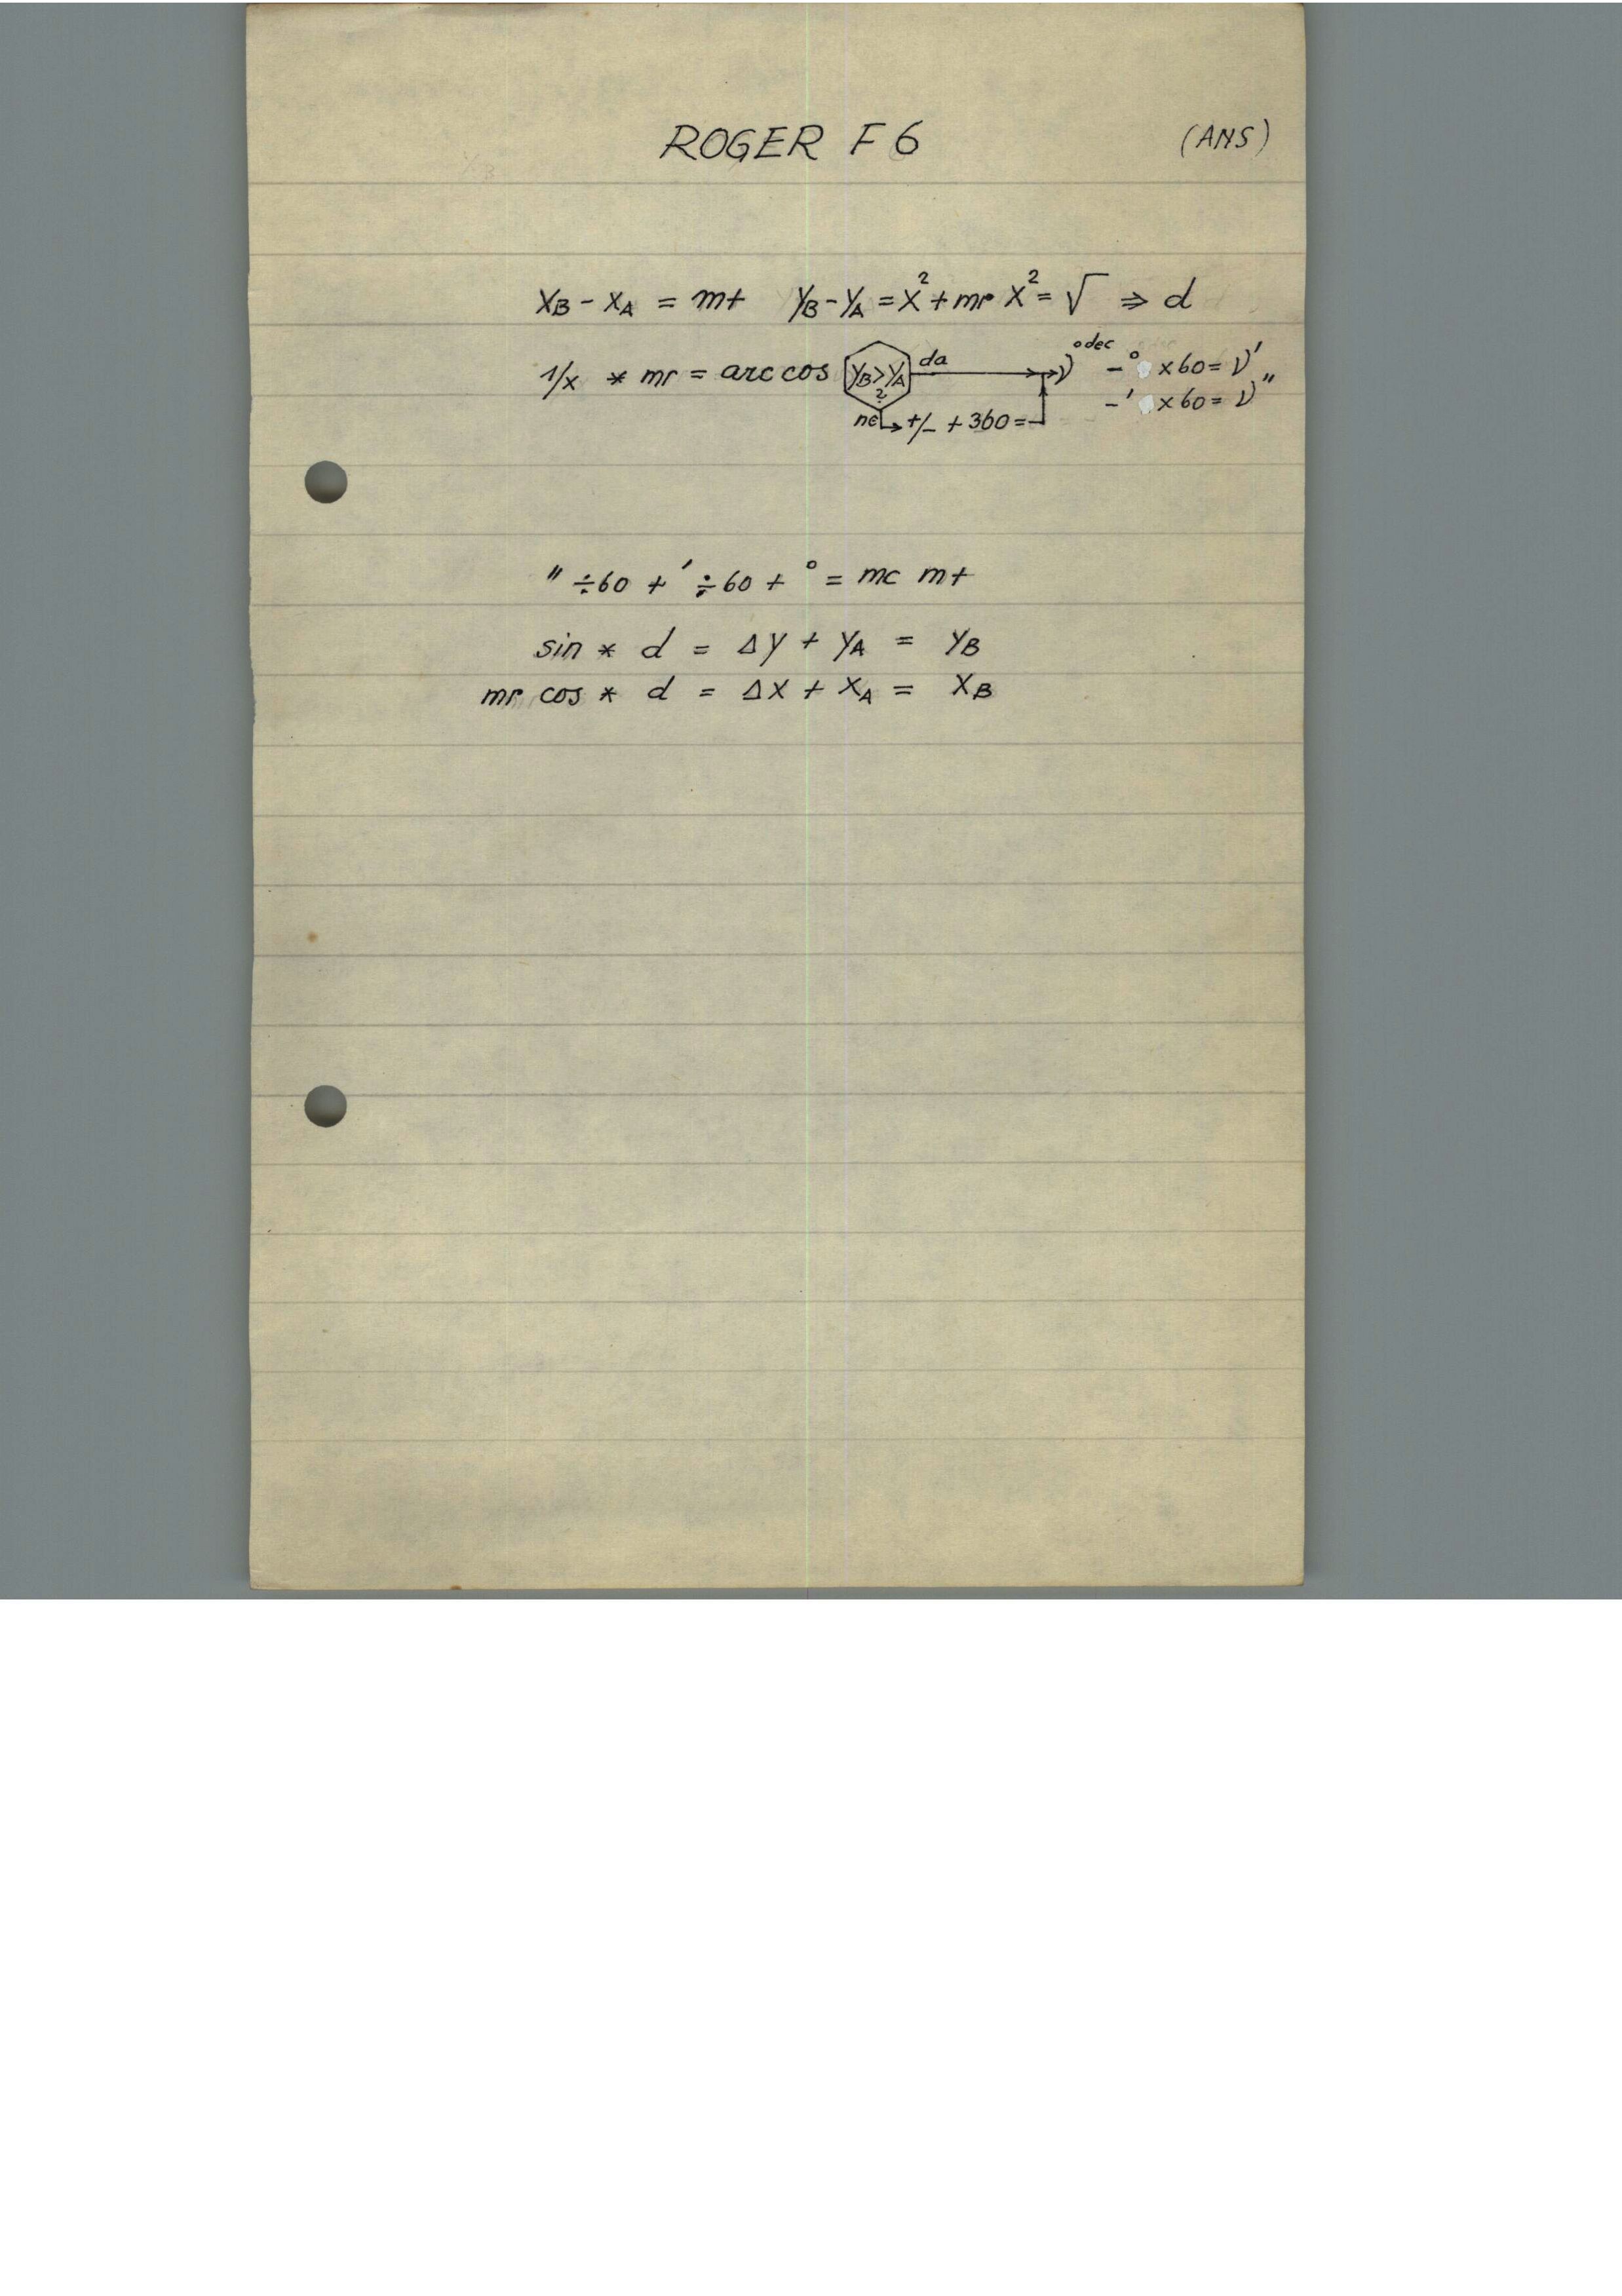 ROGER F 6 (ANS)
X_B - X_A = mt Y_B - Y_A = X² + mr X² = √ ⇒ d
1/x * mr = arc cos Y_B > Y_A ? da → ν ° dec - ° x 60 = ν'
- ' x 60 = ν''
ne → +/- + 360 =
" ÷ 60 + ' ÷ 60 + ° = mc mt
sin * d = Δy + Y_A = Y_B
mr cos * d = Δx + X_A = X_B